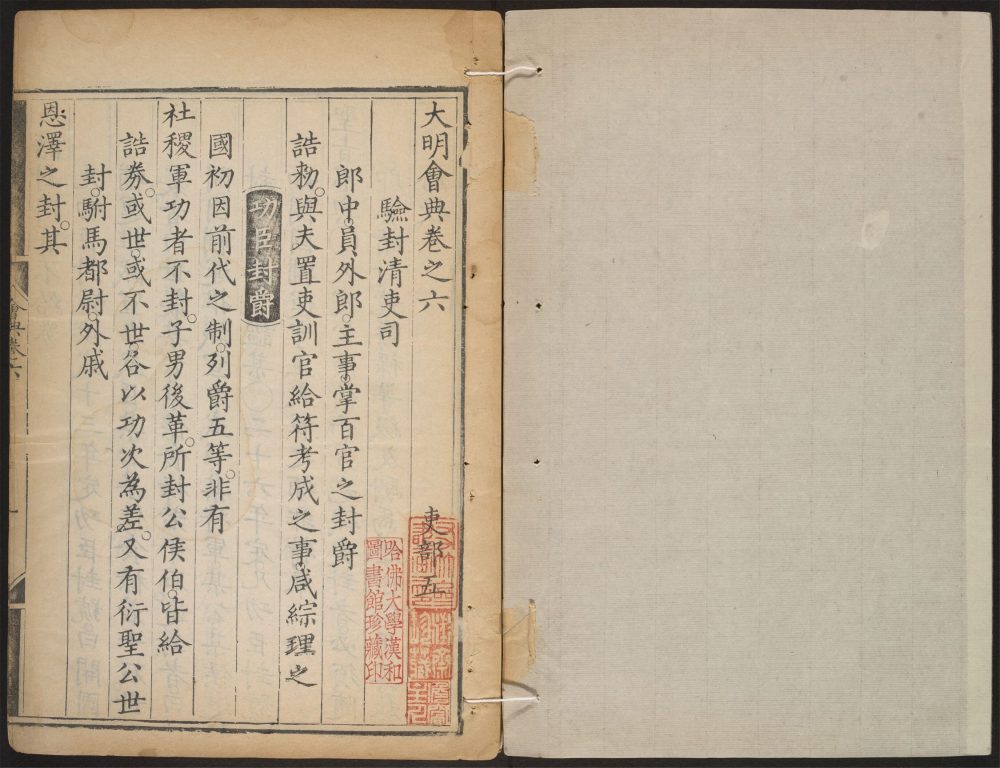 大明會典卷之六
吏部五
驗封清吏司
郎中。員外郎。主事。掌百官之封爵
誥勑。與夫置吏訓官給符考成之事。咸綜理之
功臣封爵
國初因前代之制。列爵五等。非有
社稷軍功者不封。子男後革。所封公侯伯。皆給
誥券。或世。或不世。各以功次為差。又有衍聖公世
封。駙馬都尉。外戚
恩澤之封。其
會典卷六
哈佛大學漢和
圖書館珍藏印